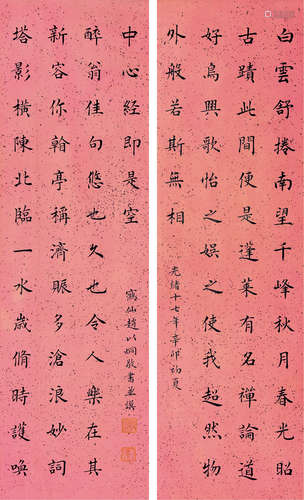 白雲舒捲南望千峰秋月春光昭
古蹟此間便是蓬萊有名禪論道
好鳥興歌怡之娛之使我超然物
外般若斯無相
光緒十七年辛卯初夏
塔影橫陳北臨一水歲脩時護喚
新容你翰亭稱濟賑多滄浪妙詞
醉翁佳句悠也久也令人樂在其
中心經即是空
寫仙趙以烱敬書並撰